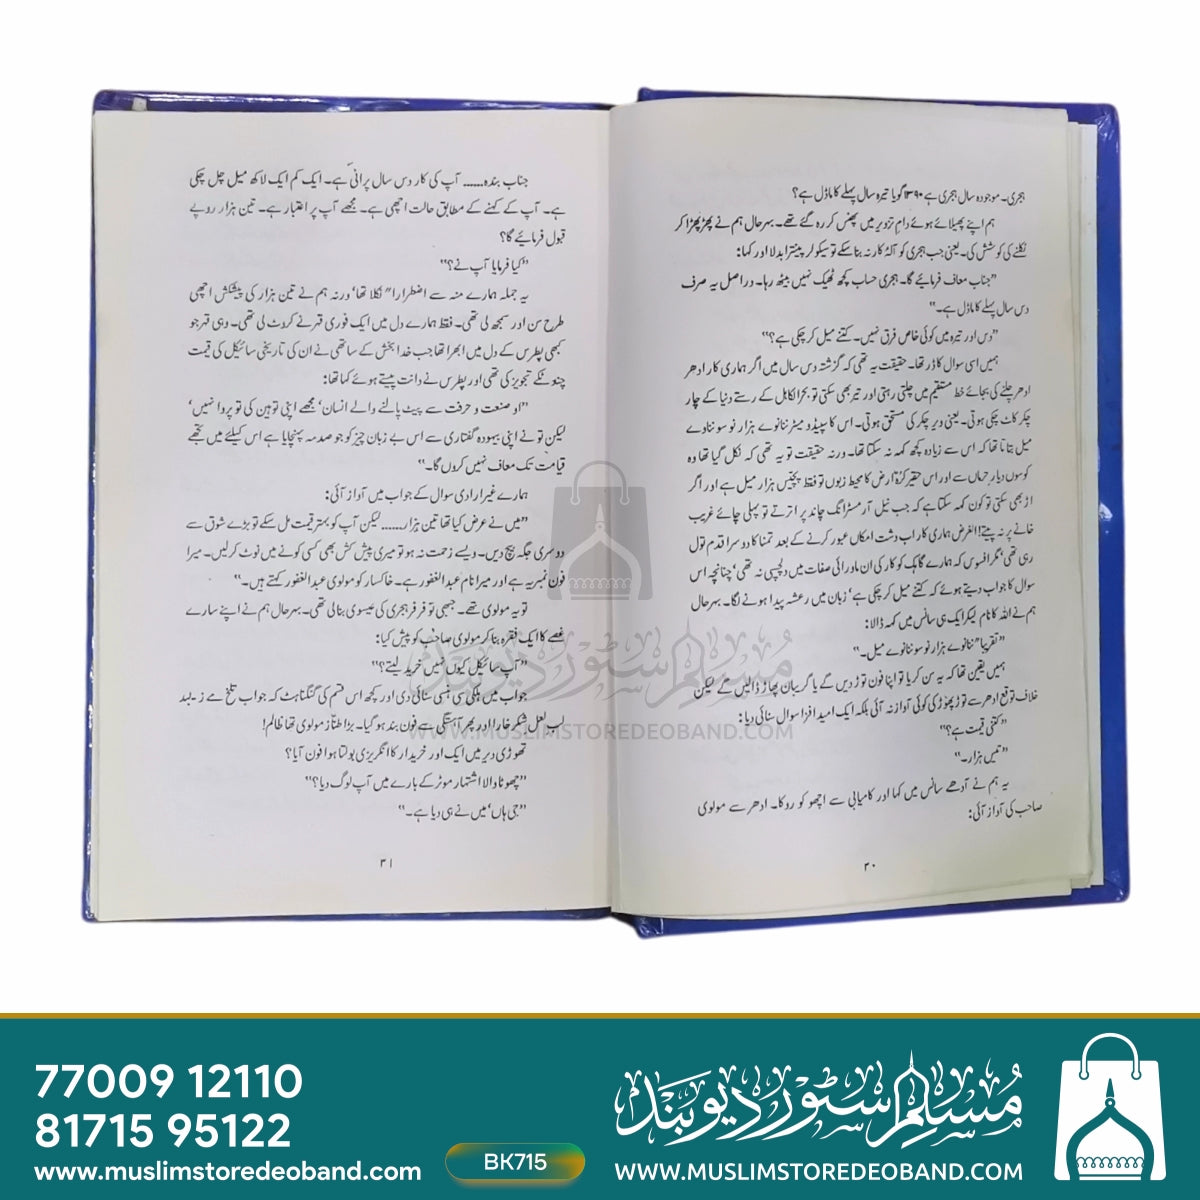 ہجری۔ موجودہ سال ہجری ہے ۱۳۹۰ گویا تیرہ سال پہلے کا ماڈل ہے؟
ہم اپنے پھیلائے ہوئے دام تزویر میں پھنس کر رہ گئے تھے۔ بہرحال ہم نے پھڑپھڑا کر
نکلنے کی کوشش کی۔ یعنی جب ہجری کو آلۂ کار نہ بنا سکے تو سیکولر پینترا بدلا اور کہا:
"جناب معاف فرمائیے گا۔ ہجری حساب کچھ ٹھیک نہیں بیٹھ رہا۔ دراصل یہ صرف
دس سال پہلے کا ماڈل ہے۔"
"دس اور تیرہ میں کوئی خاص فرق نہیں۔ کتنے میل کر چکی ہے؟"
ہمیں اسی سوال کا ڈر تھا۔ حقیقت یہ تھی کہ گزشتہ دس سال میں اگر ہماری کار ادھر
ادھر چلنے کی بجائے خط مستقیم میں چلتی رہتی اور تیر بھی سکتی تو بحرالکاہل کے رستے دنیا کے چار
چکر کاٹ چکی ہوتی۔ یعنی ویر چکر کی مستحق ہوتی۔ اس کا سپیڈومیٹر ننانوے ہزار نو سو ننانوے
میل بتاتا تھا کہ اس سے زیادہ کچھ کہہ نہ سکتا تھا۔ ورنہ حقیقت تو یہ تھی کہ نکل گیا تھا وہ
کوسوں دیار حرماں سے اور اس حقیر کرۂ ارض کا محیط زبوں تو فقط پچیس ہزار میل ہے اور اگر
اڑ بھی سکتی تو کون کہہ سکتا ہے کہ جب نیل آرمسٹرانگ چاند پر اترتے تو پہلی چائے غریب
خانے پر نہ پیتے! الغرض ہماری کار اب دشت امکاں عبور کرنے کے بعد تمنا کا دوسرا قدم تول
رہی تھی، مگر افسوس کہ ہمارے گاہک کو کار کی ان ماورائی صفات میں دلچسپی نہ تھی، چنانچہ اس
سوال کا جواب دیتے ہوئے کہ کتنے میل کر چکی ہے، زبان میں رعشہ پیدا ہونے لگا۔ بہرحال
ہم نے اللہ کا نام لیکر ایک ہی سانس میں کہہ ڈالا:
"تقریباً ننانوے ہزار نو سو ننانوے میل۔"
ہمیں یقین تھا کہ یہ سن کر یا تو اپنا فون توڑ دیں گے یا گریبان پھاڑ ڈالیں گے لیکن
خلاف توقع ادھر سے توڑ پھوڑ کی کوئی آواز نہ آئی بلکہ ایک امید افزا سوال سنائی دیا:
"کتنی قیمت ہے؟"
"تیس ہزار۔"
یہ ہم نے آدھے سانس میں کہا اور کامیابی سے اچھو کو روکا۔ ادھر سے مولوی
صاحب کی آواز آئی:
۳۰
جناب بندہ...... آپ کی کار دس سال پرانی ہے۔ ایک کم ایک لاکھ میل چل چکی
ہے۔ آپ کے کہنے کے مطابق حالت اچھی ہے۔ مجھے آپ پر اعتبار ہے۔ تین ہزار روپے
قبول فرمائیے گا؟
"کیا فرمایا آپ نے؟"
یہ جملہ ہمارے منہ سے اضطراراً نکلا تھا، ورنہ ہم نے تین ہزار کی پیشکش اچھی
طرح سن اور سمجھ لی تھی۔ فقط ہمارے دل میں ایک فوری قہر نے کروٹ لی تھی۔ وہی قہر جو
کبھی پطرس کے دل میں ابھرا تھا جب خدا بخش کے ساتھی نے ان کی تاریخی سائیکل کی قیمت
چند ٹکے تجویز کی تھی اور پطرس نے دانت پیستے ہوئے کہا تھا:
"او صنعت و حرفت سے پیٹ پالنے والے انسان، مجھے اپنی توہین کی تو پروا نہیں،
لیکن تو نے اپنی بیہودہ گفتاری سے اس بے زبان چیز کو جو صدمہ پہنچایا ہے اس کیلئے میں تجھے
قیامت تک معاف نہیں کروں گا۔"
ہمارے غیر ارادی سوال کے جواب میں آواز آئی:
"میں نے عرض کیا تھا تین ہزار...... لیکن آپ کو بہتر قیمت مل سکے تو بڑے شوق سے
دوسری جگہ بیچ دیں۔ ویسے زحمت نہ ہو تو میری پیش کش بھی کسی کونے میں نوٹ کر لیں۔ میرا
فون نمبر یہ ہے اور میرا نام عبدالغفور ہے۔ خاکسار کو مولوی عبدالغفور کہتے ہیں۔"
تو یہ مولوی تھے۔ جبھی تو فر فر ہجری کی عیسوی بنا لی تھی۔ بہرحال ہم نے اپنے سارے
غصے کا ایک فقرہ بنا کر مولوی صاحب کو پیش کیا:
"آپ سائیکل کیوں نہیں خرید لیتے؟"
جواب میں ہلکی سی ہنسی سنائی دی اور کچھ اس قسم کی گنگناہٹ کہ جواب تلخ مے زیبد
لب لعل شکر خارا اور پھر آہستگی سے فون بند ہو گیا۔ بڑا طناز مولوی تھا ظالم!
تھوڑی دیر میں ایک اور خریدار کا انگریزی بولتا ہوا فون آیا؟
"چھوٹا والا اشتہار موٹر کے بارے میں آپ لوگ دیا؟"
"جی ہاں، میں نے ہی دیا ہے۔"
۳۱
مسلم سٹور دیوبند
WWW.MUSLIMSTOREDEOBAND.COM
77009 12110
81715 95122
www.muslimstoredeoband.com
BK715
مسلم سٹور دیوبند
WWW.MUSLIMSTOREDEOBAND.COM